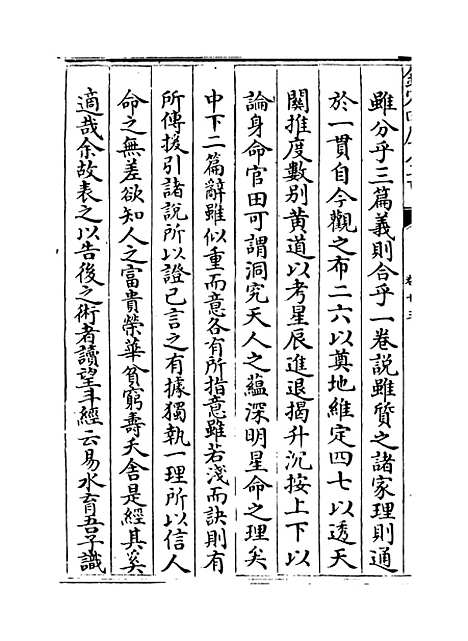 雖分乎三篇義則合乎一卷說雖質之諸家理則通
於一貫自今觀之布二六以奠地維定四七以透天
關推度數別黄道以考星辰進退揭升沉按上下以
論身命官田可謂洞究天人之蘊深明星命之理矣
中下二篇辭雖似重而意各有所指意雖若淺而訣則有
所傳援引諸說所以證已言之有據獨執一理所以信人
命之無差欲知人之富貴榮華貧窮壽夭舍是經其奚
適哉余故表之以告後之術者讀望斗經云易水育吾子識